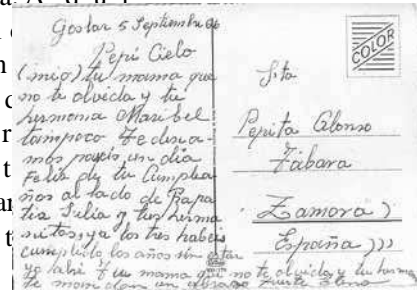 Goslar 5 Septiembre 66
Pepi Cielo
(mio) tu mama que
no te olvida y tu
hermana Maribel
tampoco Te desea-
mos pases un dia
Feliz de tu Cumplea
ños al lado de Papa
tia Julia y tus herma
nitos, ya los tres habeis
cumplido los años sin estar
yo ahi Tu mama que no te olvida y tu herma
te mandan un abrazo Fuerte
COLOR
Sta
Pepita Alonso
Tábara
Zamora)
España)))